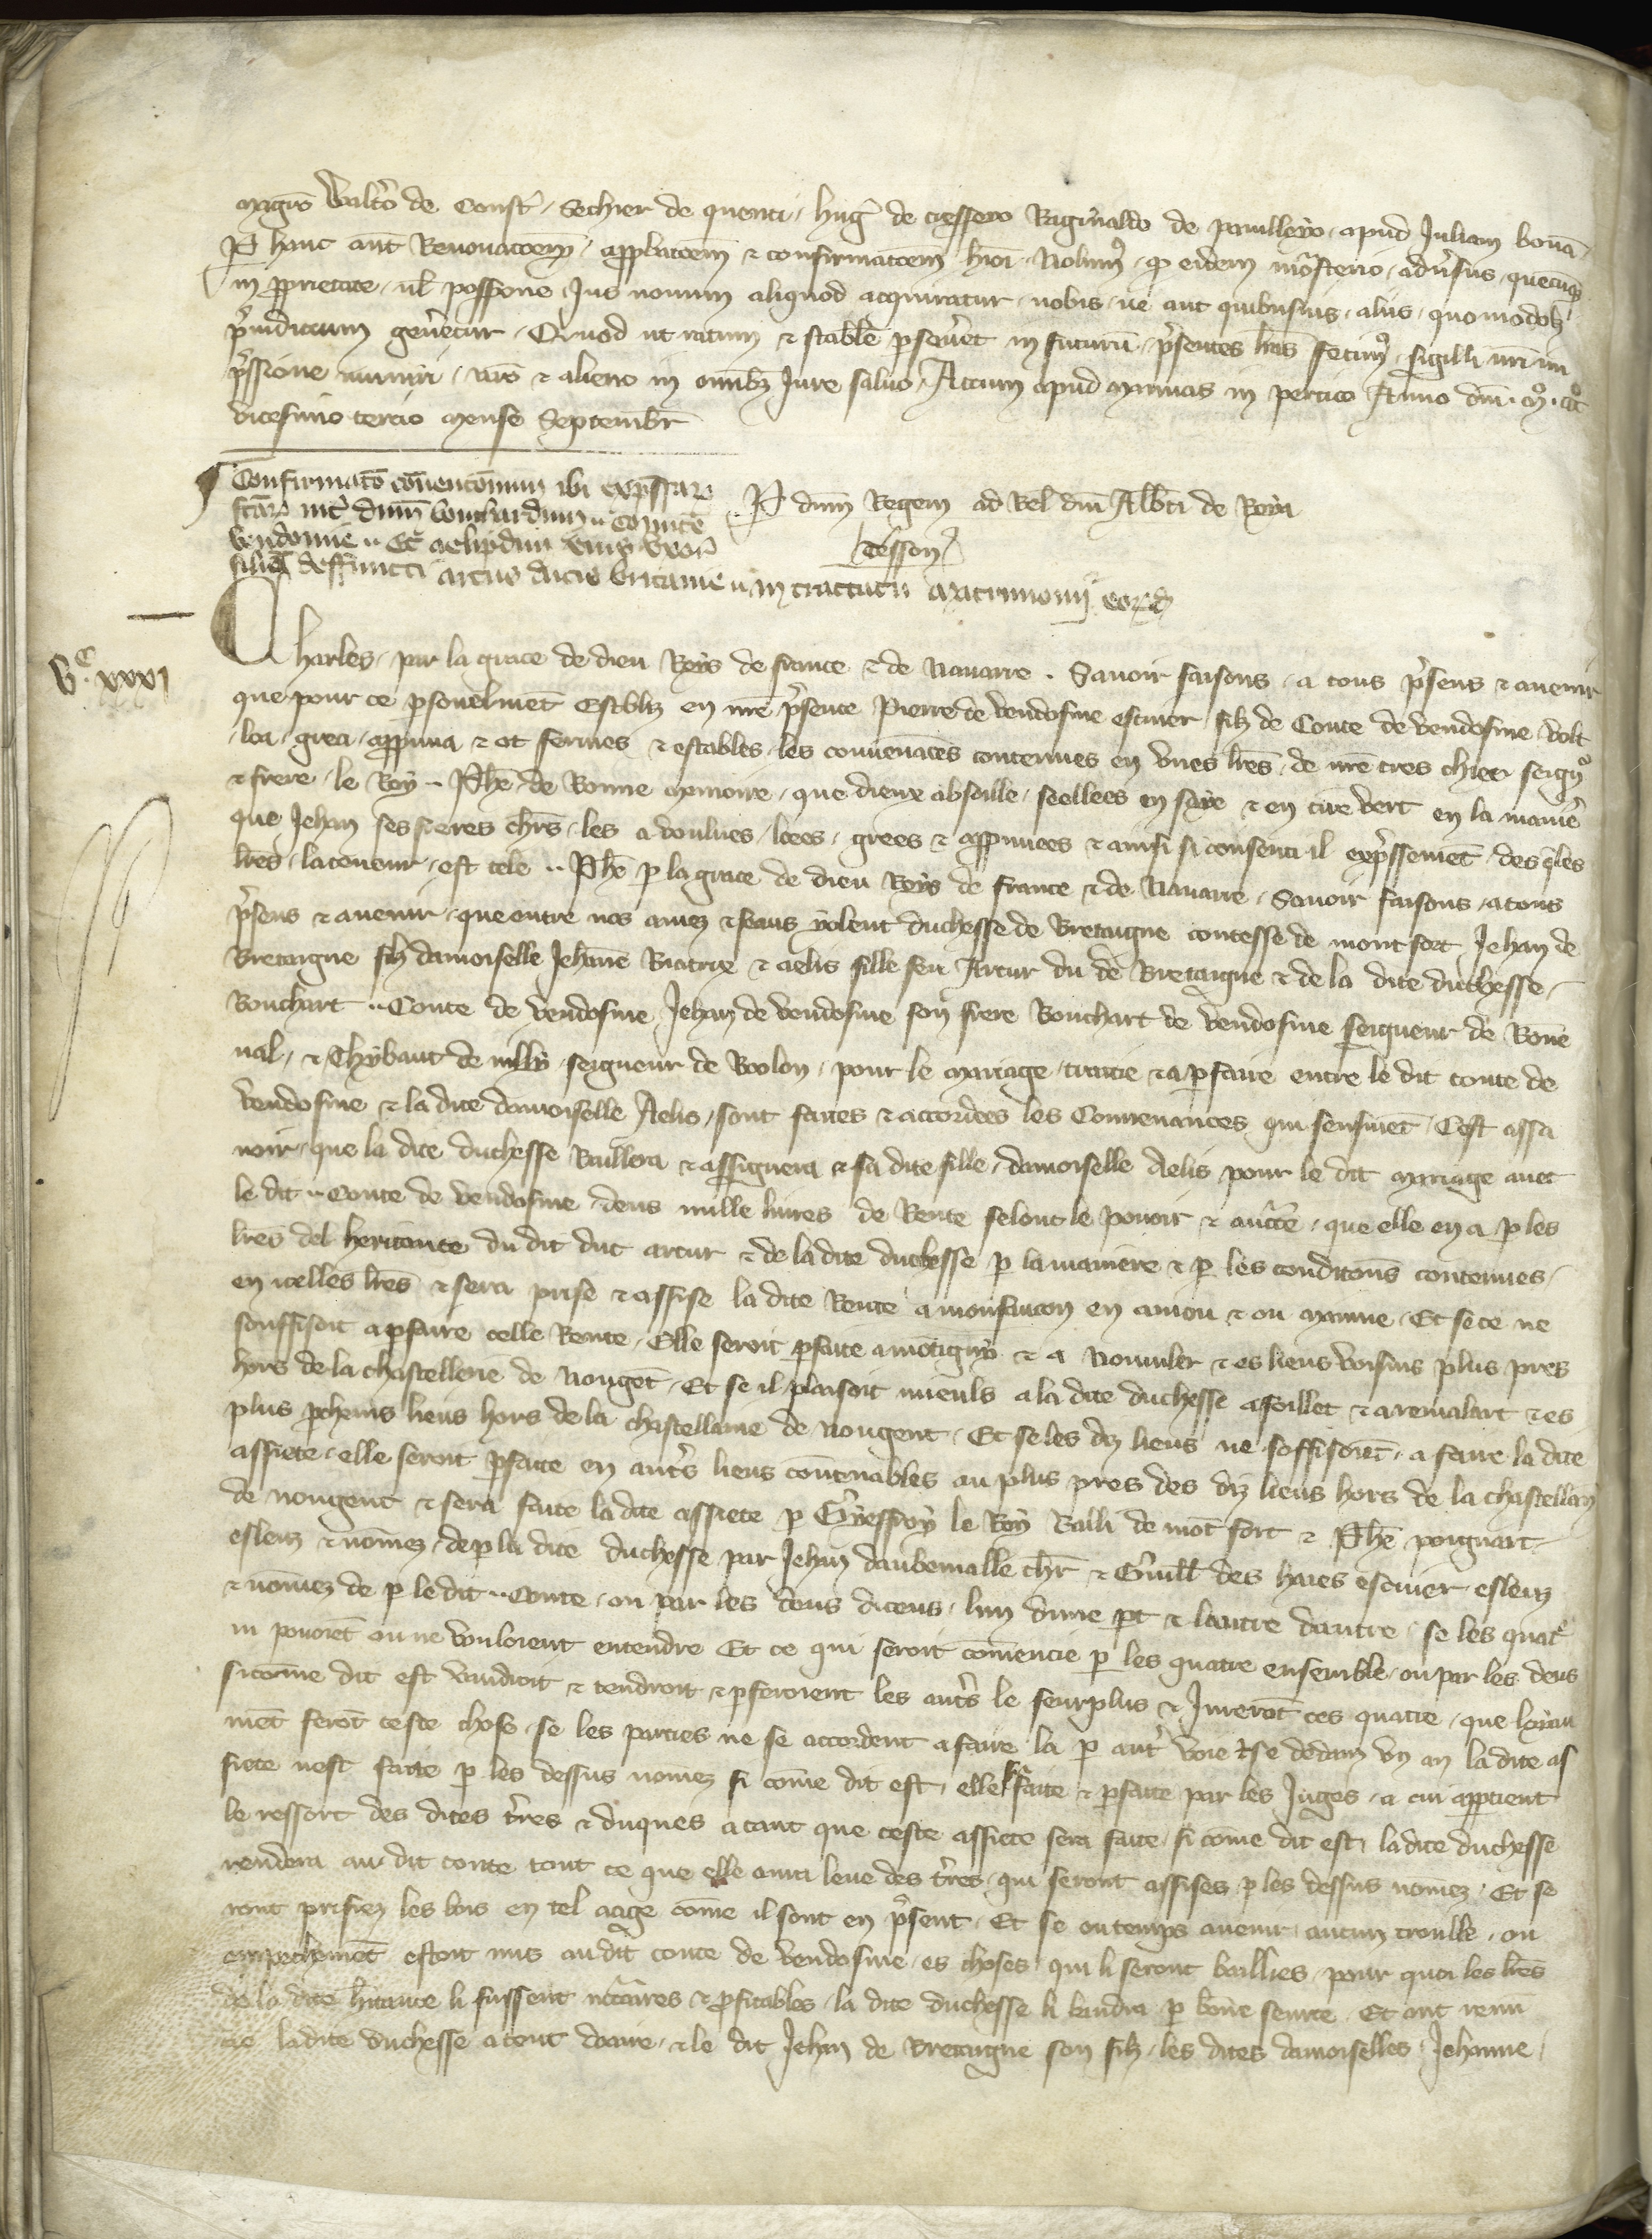 magrō Valtō de Const̄. Sechier de quenci. huḡ de cressero Raginaldo de paulleyo. apud Juliam bonā.
P hanc aut Renouacōem, approbacōem & confirmacōem huiōi Nolumꝰ. qꝫ eidem moñsterio. adũsus. quecūqꝫ
in proprietate. ul̄ possōne Jus nouum aliquod acquiratur. nobis. ue aut quibusuis. aliis. quomodolꝫ
p̄iudicium gen̄etur. Quod ut ratum & stabile p̱seūet in futurū. p̄sentes lr̄as fecimꝰ. sigilli nr̄i im
p̄ssione muniri. nr̄o & alieno in om̄ibꝫ Jure saluo. Actum apud in pertico Anno dn̄i. mͦ. cccͦ
vicesimo tercio mense Septembr̄
Confirmatō cōuencōnum ibi exp̄ssarꝝ
fcāꝝ int̄ dn̄m bouchardum.. comitē
vendocinē .. Et aelipdim eius vxorē
filiā deffuncti arcus ducis britanie in tractatu matrimonii eorꝫd̄
P dn̄m Regem ad Rel̄ dn̄i Alb̄ti de Roya
Tesson
vᶜ. xxxi
Charles. par la grace de dieu Roys de france & de Nauarre. Sauoir faisons. a tous p̄sens & auenir
que pour ce p̱sonelmēt Establiz en nr̄e p̄sence Pierre de vendosme escuier filz de Conte de vendosme. volt
loa. grea. appruua & ot fermes & estables. les conuenāces contenues en vnes lr̄es. de nr̄e tres chier seignꝰ
& frere. le Roy .. Ph̄e de Bonne memoire. que dieux absoille. seellees en saye & en cire vert en la manie᷑
que Jehan ses freres chr̄s. les a voulues. loees. grees & appruuees & ainsi si consenti il exp̄ssemēt. des q̄les
lr̄es. la teneur. est tele .. Ph̄e p̱ la grace de dieu Roys de france & de Nauarre. Sauoir faisons. a tous
p̄sens & auenir. que entre nos amez & feaus yolent duchesse de Bretaigne contesse de mont fort Jehan de
Bretaigne filz damoiselle Jehāne Biatrix & aelis fille feu Artur du de Bretaigne & de la dite duchesse.
Bouchart .. Conte de vendosme Jehan de vendosme son frere Bouchart de vendosme seigneur de Bone
ual. & Thybaut de nilly. seigneur de Boolon. pour le mariage. traitie & a p̱faire entre le dit conte de
vendosme & la dite damoiselle Aelis. sont faites & accordees les Conuenances qui sensiuēt. Cest assa
uoir. que la dite duchesse Baillera & assignera & sa dite fille. damoiselle Aelis pour le dit mariage auec
le dit .. Conte de vendosme. deus mille liures de Rente selont le pouoir & auct̄e. que elle en a p̱ les
lr̄es del heritaute du dit duc artur & de la dite duchesse p̱ la maniere & p̱ les condicōns contenues.
en icelles lr̄es & sera prise & assise la dite Rente a monfaucon en aniou & ou mainne. Et se ce ne
souffisoit a p̱faire celle Rente. Elle seroit p̱faite a mōtigny & a Nouuiler & es lieus voisins plus pres
hors de la chastellerie de Nougēt. Et se il plaisoit mieuls a la dite duchesse a foillet & a remalart & es
plus p̱cheins lieus hors de la chastellanie de nougent. Et se les dꝫ lieus ne soffisoiēt. a faire la dite
assiete. elle seroit p̱faite en aut̄s lieus conuenables au plus pres des diz lieus hors de la chastellanī
de nougent & sera faite la dite assiete p̱ Gieffroy le Roy Bailli de mōt fort & Ph̄e poignart.
esleuz & nōmez. de p̱ la dite duchesse par Jehan daubemalle chr̄ & Guill̄ des haies escuier. esleuz
& nōmez de p̱ le dit .. conte. ou par les deus diceus. lun dune p̱t & lautre dautre. se les quat̄
ni pouoiēt ou ne vouloient entendre Et ce qui seroit cōmencie p̱ les quatre ensemble. ou par les deus
si cōme dit est vaudroit & tendroit & p̱feroient les aut̄s le seurplus & Jurerōt ces quatre. que loyau
mēt ferōt ceste chose. se les parties ne se accordent a faire la p̱ aut̄ voie & se dedanz vn an la dite as
siete nest faite p̱ les dessus nōmez si cōme dit est. elle sera faite & p̱faite par les Juges. a cui app̱tient
le ressort des dites t̄res & duques a tant que ceste assiete sera faite. si cōme dit est. la dite duchesse
rendera au dit conte tout ce que elle aura leue des t̄res. qui seront assises p̱ les dessus nōmez. Et se
ront prisiez les bois en tel aage cōme il sont en p̄sent. Et se ou temps auenir. aucun trouble. ou
empechemēt estoit mis au dit conte de vendosme. es choses qui li seront baillies. pour quoi les lr̄es
de la dite h̄itance li fussent nēccāires & p̱fitables. la dite duchesse li baudra p̱ bōne seurte. Et ont renū
cie la dite duchesse a tout doaire. & le dit Jehan de Bretaigne son filz. les dites damoiselles Jehanne.